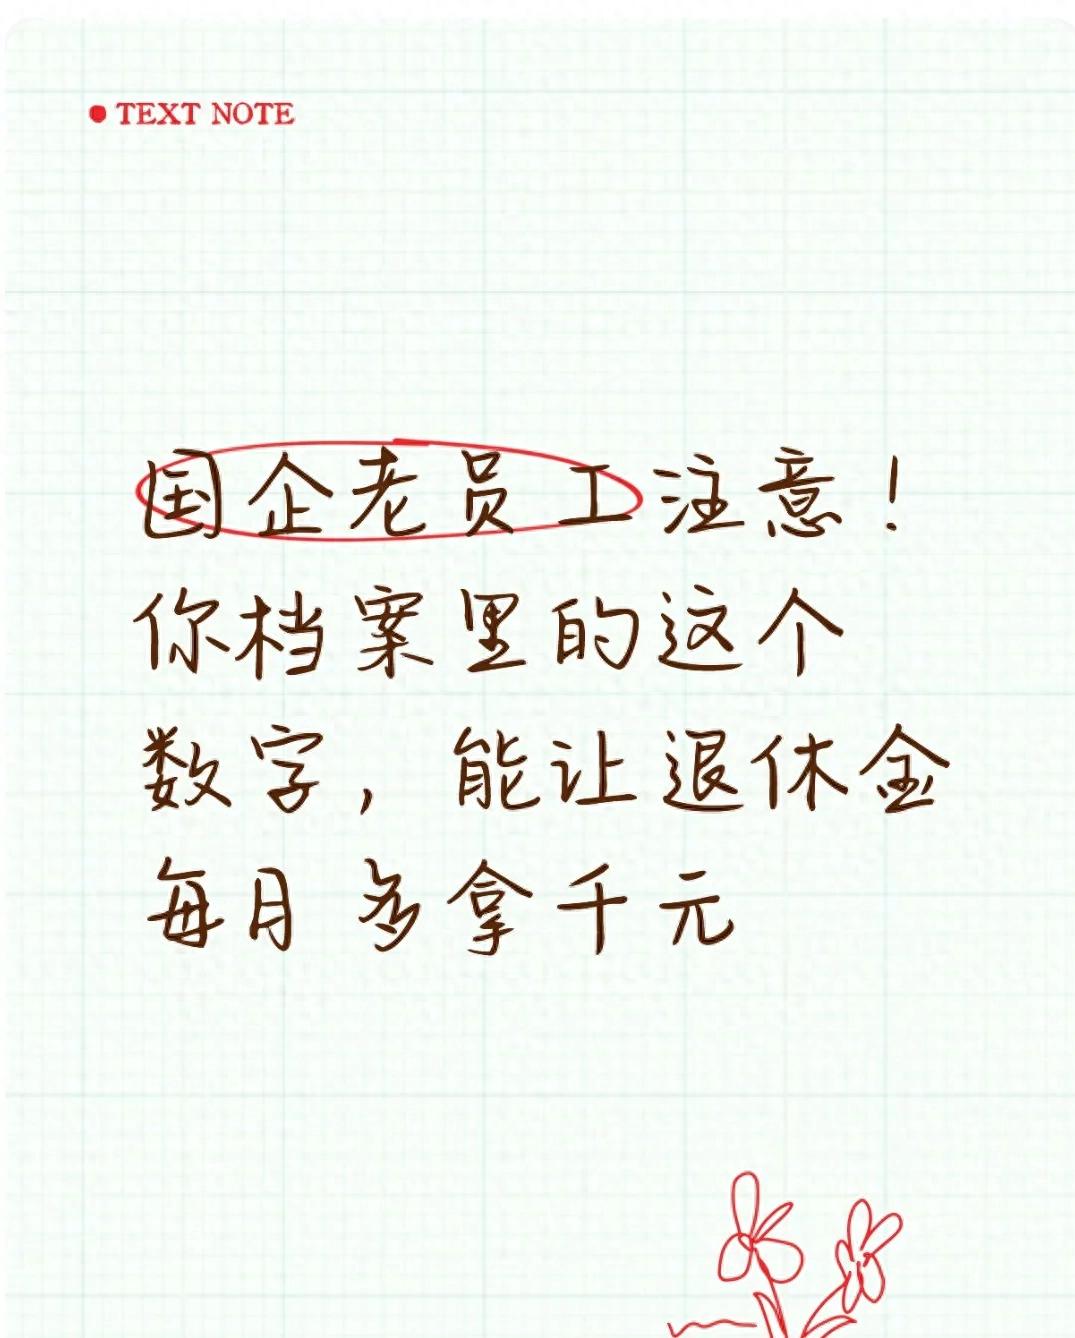 TEXT NOTE
国企老员工注意！
你档案里的这个
数字，能让退休金
每月多拿千元